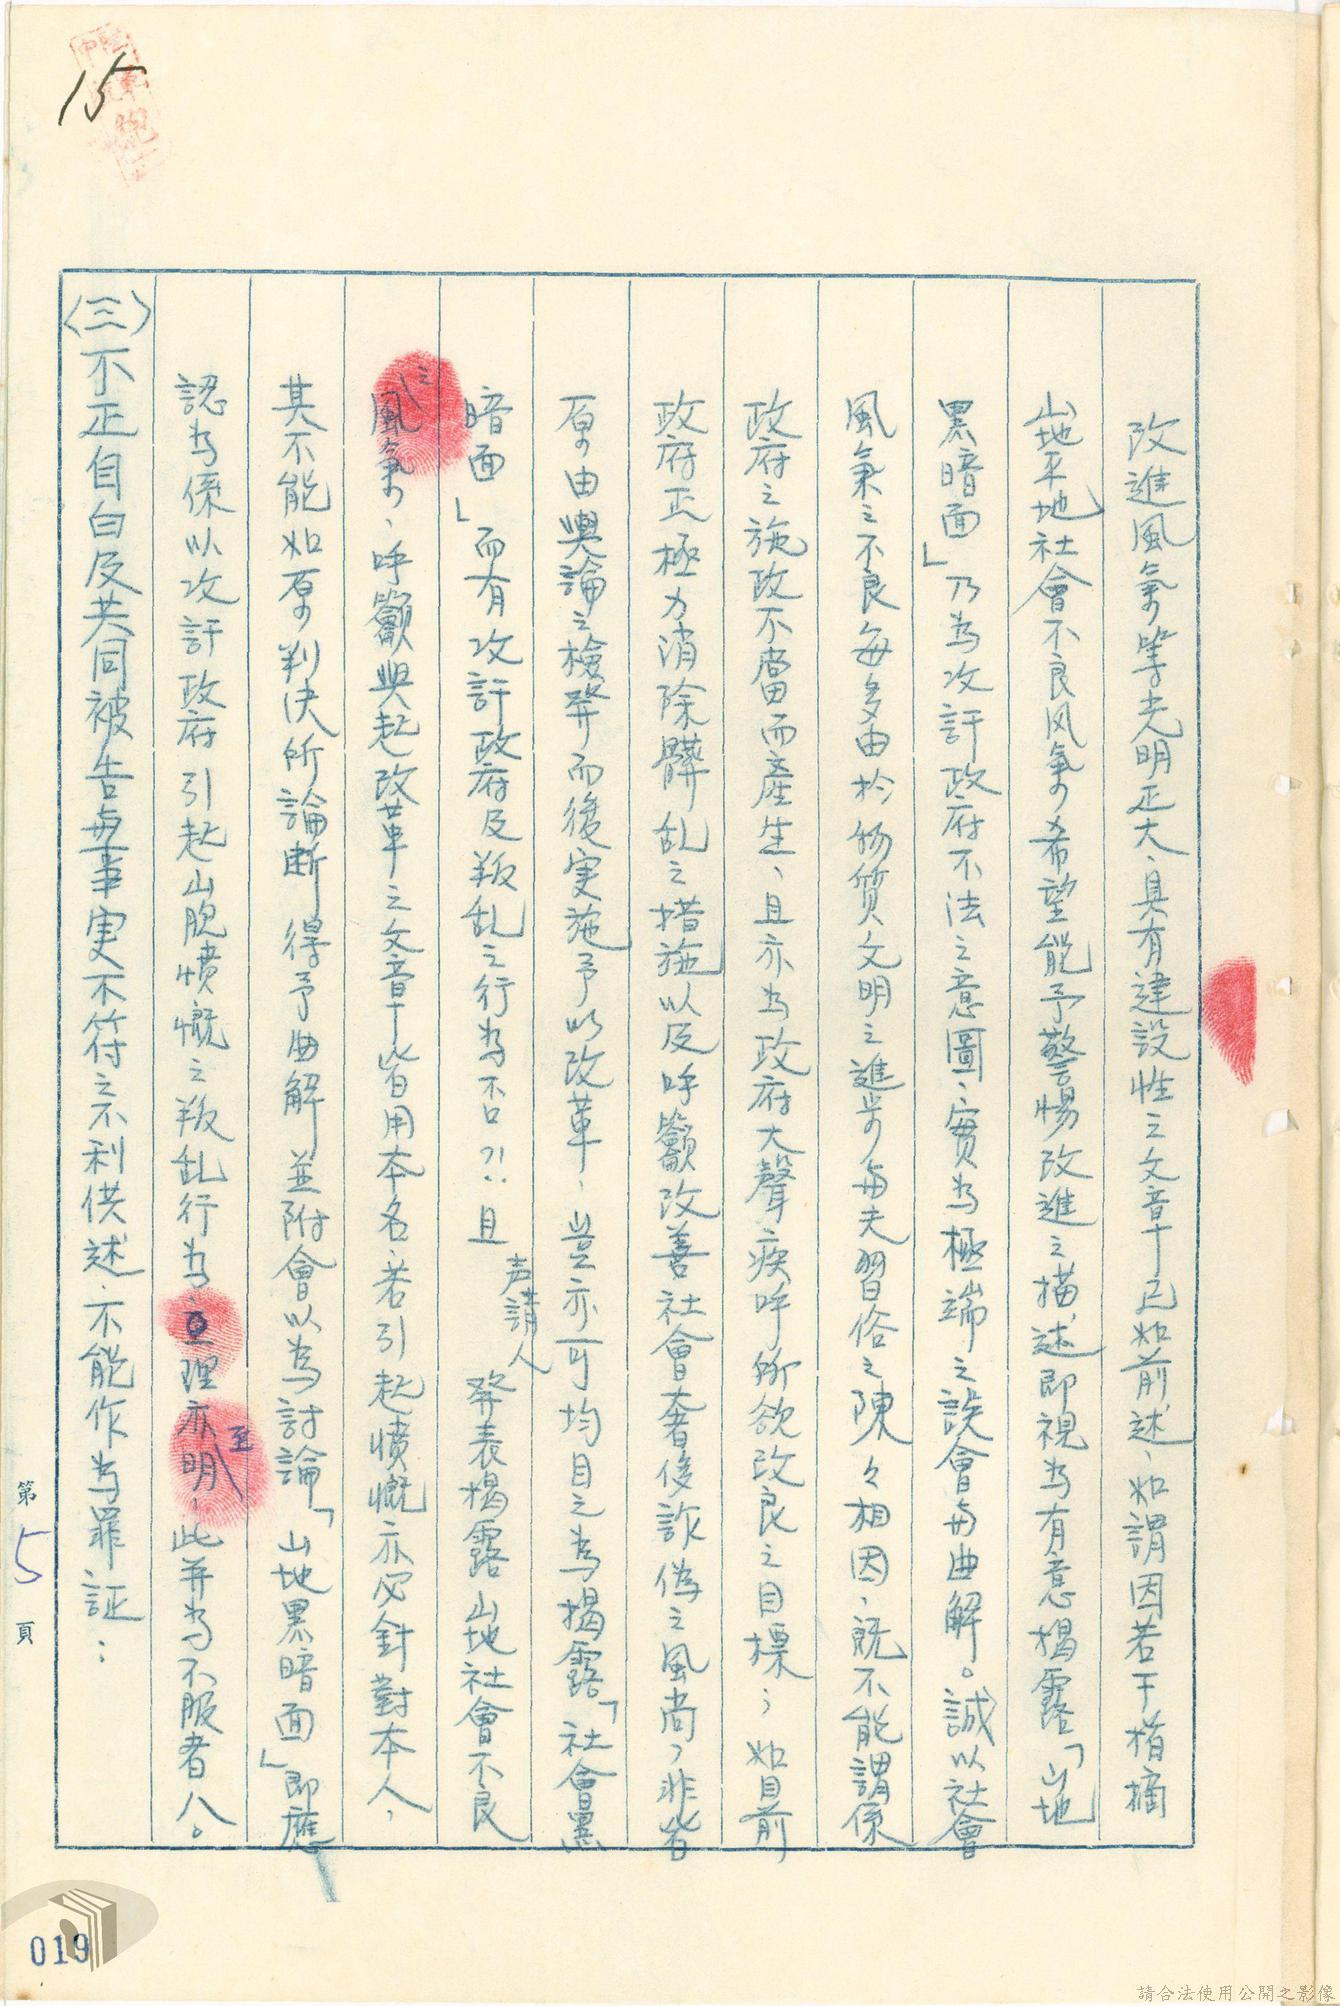 15
改進風氣等光明正大、具有建設性之文章已如前述、如謂因若干指摘
山地平地社會不良风氣希望能予警惕改進之描述即視為有意揭露「山地
黑暗面」乃為攻訐政府不法之意圖、實為極端之誤會與曲解。誠以社會
風氣之不良每多由於物質文明之進步與夫習俗之陳々相因、既不能謂係
政府之施政不當而產生、且亦為政府大聲疾呼所欲改良之目標；如目前
政府正極力消除髒乱之措施以及呼籲改善社會奢侈詐偽之風尚、非皆
原由輿論之檢举而後実施予以改革、豈亦可均目之為揭露「社會黑
暗面」而有攻訐政府及叛乱之行為否？！且声請人発表揭露山地社會不良
之風氣、呼籲興起改革之文章皆用本名若引起憤慨亦必針對本人、
其不能如原判決所論断得予曲解並附會以為討論「山地黑暗面」即應
認為係以攻訐政府引起山胞憤慨之叛乱行為、理亦至明、此并為不服者八。
〈三〉不正自白及共同被告與事実不符之不利供述、不能作為罪証：
第5頁
019
請合法使用公開之影像